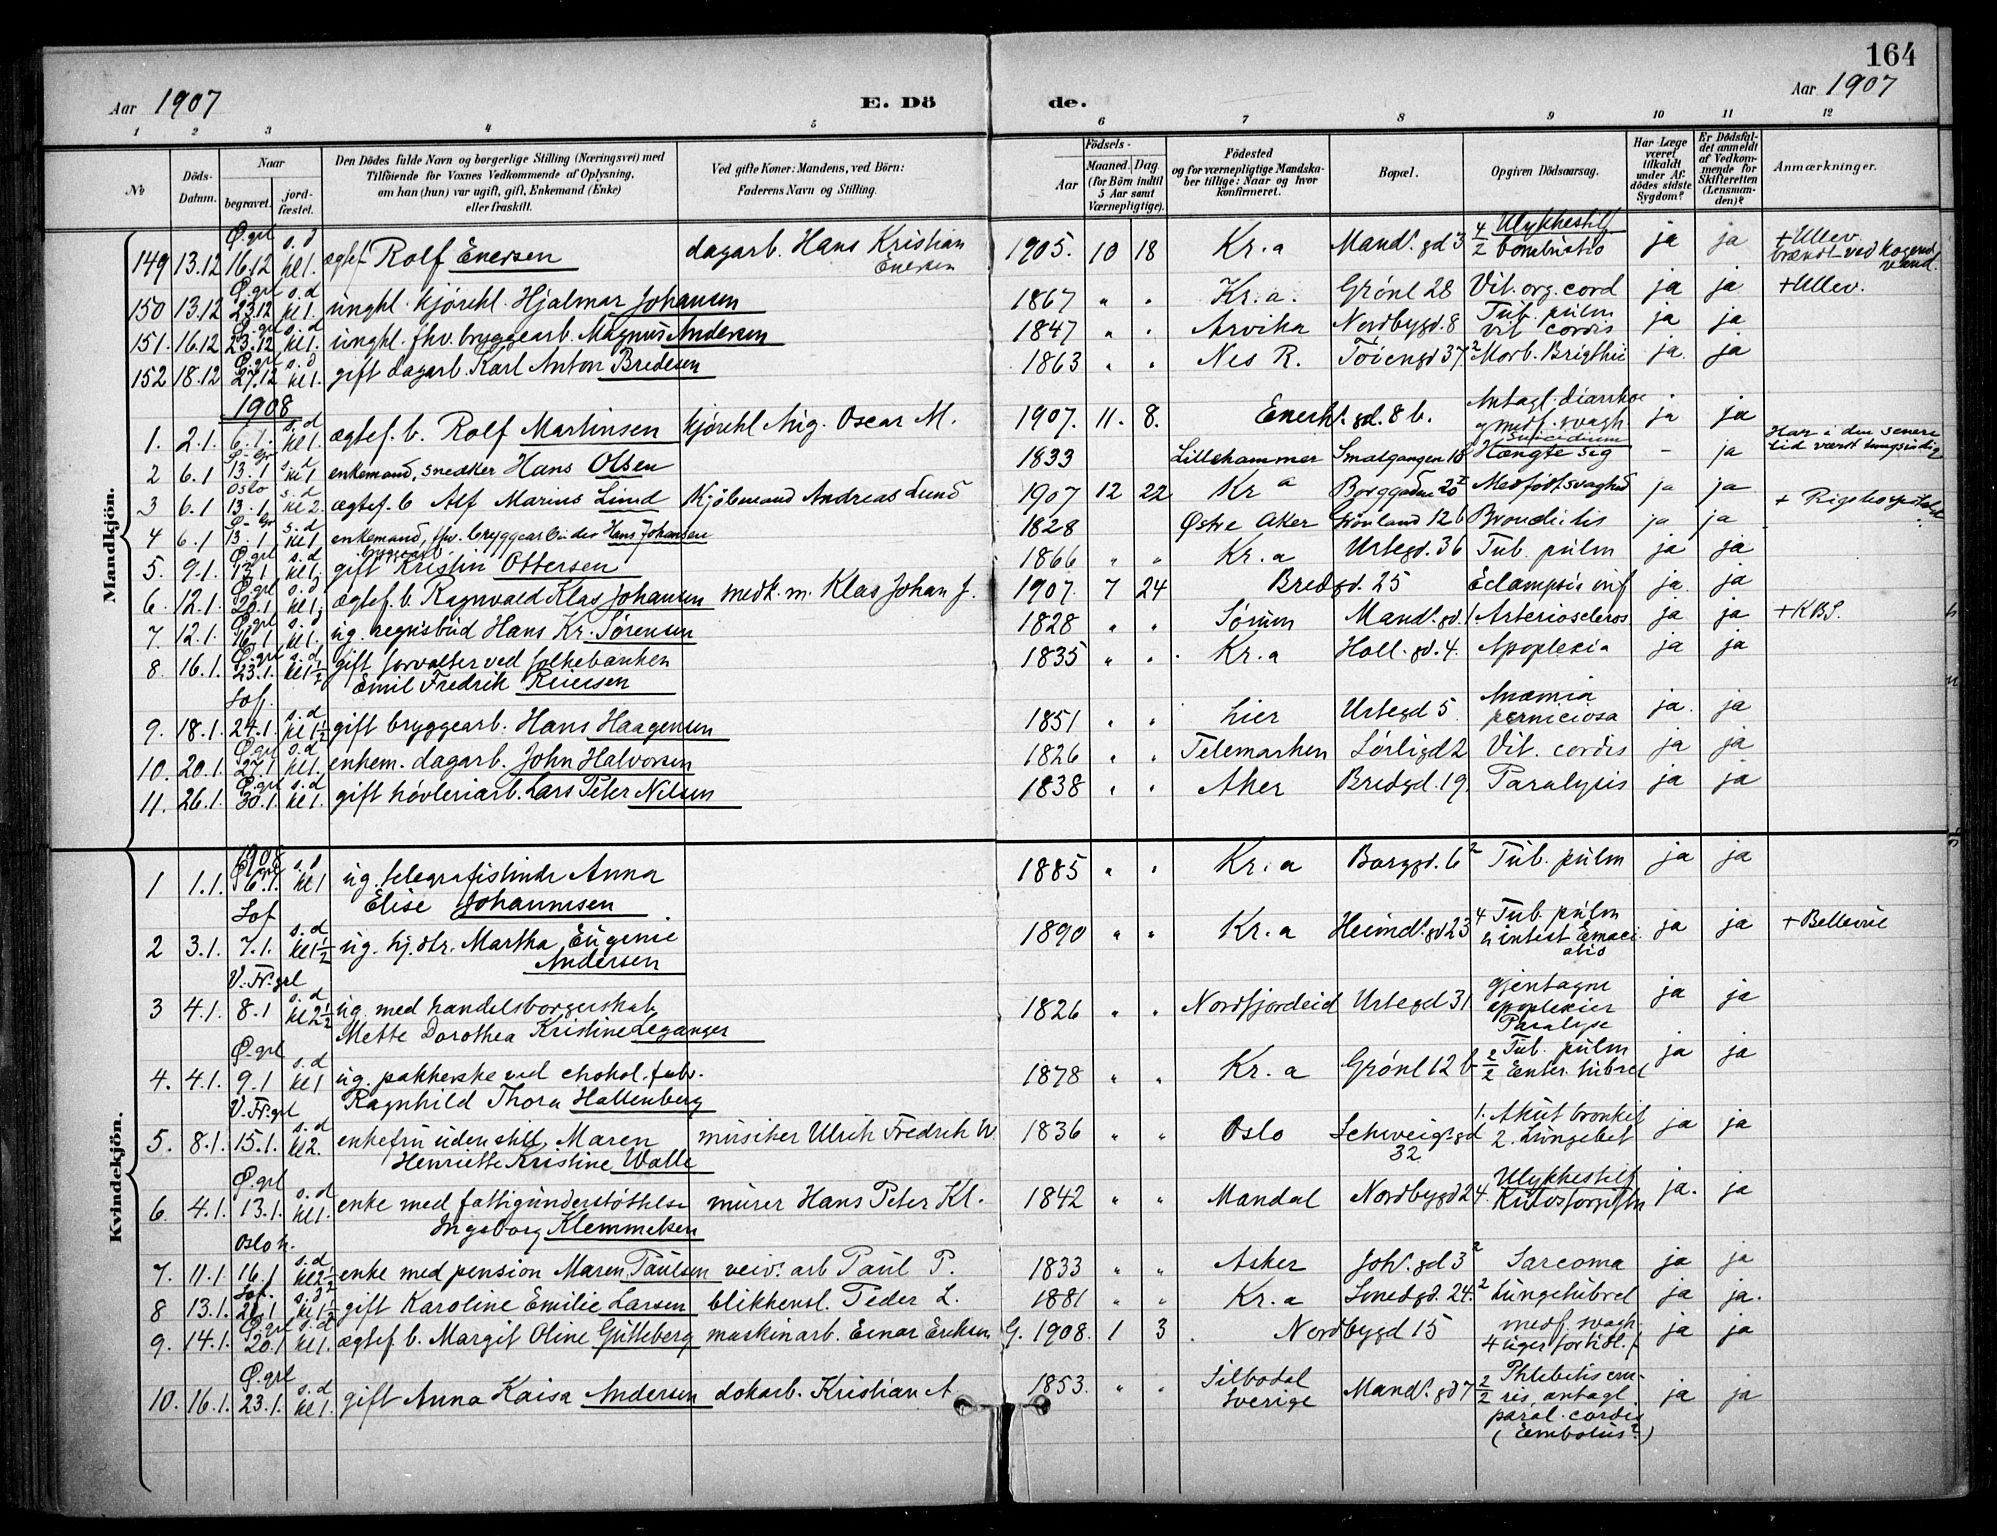 164
Aar 1907 E. Dö de. Aar 1907
1 2 3 4 5 6 7 8 9 10 11 12
No
Döds-Datum.
Naar
begravet.
jordfæstet.
Den Dödes fulde Navn og borgerlige Stilling (Næringsvei) med
Tilföiende for Voxnes Vedkommende af Oplysning,
om han (hun) var ugift, gift, Enkemand (Enke)
eller fraskilt.
Ved gifte Koner: Mandens, ved Börn:
Faderens Navn og Stilling.
Födsels-
Aar
Maaned. Dag
(for Börn indtil
5 Aar samt
Værnepligtige).
Födested
og for værnepligtige Mandska-
ber tillige: Naar og hvor
konfirmeret.
Bopæl.
Opgiven Dödsaarsag.
Har Læge
været
tilkaldt
under Af-
dödes sidste
Sygdom?
Er Dödsfal-
det anmeldt
af Vedkom-
mende for
Skifteretten
(Lensman-
den)?
Anmærkninger.
Mandkjön.
149 13.12 Ø.grl 16.12 s.d kl 1. ægtef Rolf Enersen dagarb. Hans Kristian Enersen 1905. 10 18 Kr.a Mands.gd 3 4/2 Ulykkestilf combustio ja ja + Ullev. brændt ved kogend vand.
150 13.12 Ø.grl 23.12 s.d kl 1. ungkl. kjørekl. Hjalmar Johansen 1867 " " Kr.a. Grønl 28 Vit. org. cord ja ja + Ullev.
151. 16.12 Ø.grl 23.12 s.d kl 1. ungkl. fhv. bryggearb. Magnus Andersen 1847 " " Arvika Nordbygd. 8 Tub. pulm vit cordis ja ja
152 18.12 Ø.grl 27.12 s.d kl 1. gift dagarb. Karl Anton Bredesen 1863 " " Nes R. Tøiengd 37 2 Morb. Brigthii ja. ja
1908
1. 2.1. 6.1. s.d kl 1. ægtef. b. Rolf Martinsen kjørekl Aug. Oscar M. 1907. 11. 8. Enerh.gd. 8 b. Antagl. diarrhoe g medf. svagh ja ja
2 6.1 Ø-Gr 13.1 s.d kl 1 enkemand, snedker Hans Olsen 1833 Lillehammer Smalgangen 18 Suicidium Hængte sig - ja Har i den senere tid været tungsindig
3 6.1 Oslo 13.1 s.d kl 2. ægtef. b Alf Marius Lund Kjøbmand Andreas Lund 1907 12 22 Kr a Borggaden 20 I Medfødt svaghed ja ja + Rigshospitalet
4 6.1 Ø-Gr 13.1 s.d kl 1 enkemand, fhv. bryggearbeider Hans Johansen 1828 Østre Aker Grønland 12 b Bronchitis ja ja
5. 9.1. Ø.grl 13.1 s.d kl 1. gift byggearb. Kristin Ottersen 1866 " " Kr.a Urtegd. 36 Tub. pulm ja ja
6. 12.1. Ø.grl 20.1 s.d kl 1. ægtef. b. Ragnvald Klas Johansen medk. m. Klas Johan J. 1907. 7 24 Bredgd. 25 Eclampsia inf ja. ja
7. 12.1. Ø.grl 16.1. s.d kl 1. ug. regnsbud Hans Kr. Sørensen 1828 " " Sørum Mands.gd. 1 Arterioscleros ja ja + KBS.
8 16.1. Ø.grl 23.1. s.d kl 1½ gift forvalter ved folkebanken
Emil Fredrik Reiersen 1835 " " Kr.a Holl.gd. 4. Apoplexia ja ja
9. 18.1. Sof. 24.1. s.d kl 1½ gift bryggearb. Hans Haagensen 1851 " " Lier Urtegd 5. Anæmia perniciosa ja. ja
10. 20.1. Ø.grl 27.1 s.d kl 1. enkem. dagarb. John Halvorsen 1826 " " Telemarken Sørligd 2 Vit. cordis ja ja
11. 26.1. Ø.grl 30.1 s.d kl 1. gift høvleriarb. Lars Peter Nilsen 1838 " " Aker Bredgd. 19 Paralysis ja ja
Kvindekjön.
1908
1 1.1. Ø.grl 6.1. s.d kl 1 ug. telegrafistinde Anna
Elise Johannesen 1885 " " Kr.a Borggd. 6 2 Tub. pulm ja ja
2 3.1. Sof 7.1. s.d kl 1½ ug. hj.dtr. Martha Eugenie
Andersen 1890 " " Kr.a Heimd.gd 23 4 Tub. pulm u intest Emaciatio ja ja + Bellevue
3 4.1. V. Fr. grl 8.1 s.d kl 2½ ug. med handelsborgerskab
Mette Dorothea Kristine Leganger 1826 " " Nordfjordeid Urtegd 31 gjentagne apoplexier Paralyse ja ja
4. 4.1. Ø.grl 9.1 s.d kl 1 ug. pakkerske ved chokol. fabr.
Ragnhild Thora Hallenberg 1878 " " Kr.a Grønl 12 b 2/2 Tub. pulm Enter. tubrcl ja ja
5. 8.1. V. Fr. grl 15.1. s.d kl 2. enkefru uden still. Maren
Henriette Kristine Walle musiker Ulrik Fredrik W 1836 " " Oslo Schweigs.gd 32 1. Akut bronkit 2. Lungebet ja ja
6. 4.1. Ø.grl 13.1. s.d kl 1. enke med fattigunderstøttelse
Ingeborg Klemmetsen murer Hans Peter Kl. 1842 " " Mandal Nordbygd 24. Ulykkestilf Kulosforgiftn ja. ja
7. 11.1. Oslo h. 16.1 s.d. kl 2½ enke med pension Maren Paulsen veiv. arb Paul P. 1833 " " Asker Joh.gd 3 2 Sarcoma ja ja
8 13.1. Sof. 21.1 s.d kl 1½ gift Karoline Emilie Larsen blikkensl. Peder L. 1881 " " Kr.a Smedgd. 24. 2 Lungetubrcl ja ja.
9. 14.1. Ø.grl 20.1 s.d kl 1. ægtef. b. Margit Oline Gulleberg maskinarb. Einar Eriksen G. 1908. 1 3 Nordbygd 15 medf. svagh 4 uger fortidl. f ja ja
10. 16.1. Ø.grl 23.1. s.d kl 1. gift Anna Kaisa Andersen dokarb. Kristian A 1853. " " Silbodal Sverige Mands.gd 7 2/2 Phlebitis cruris, antagl. paral. cordis (Embolus?) ja ja